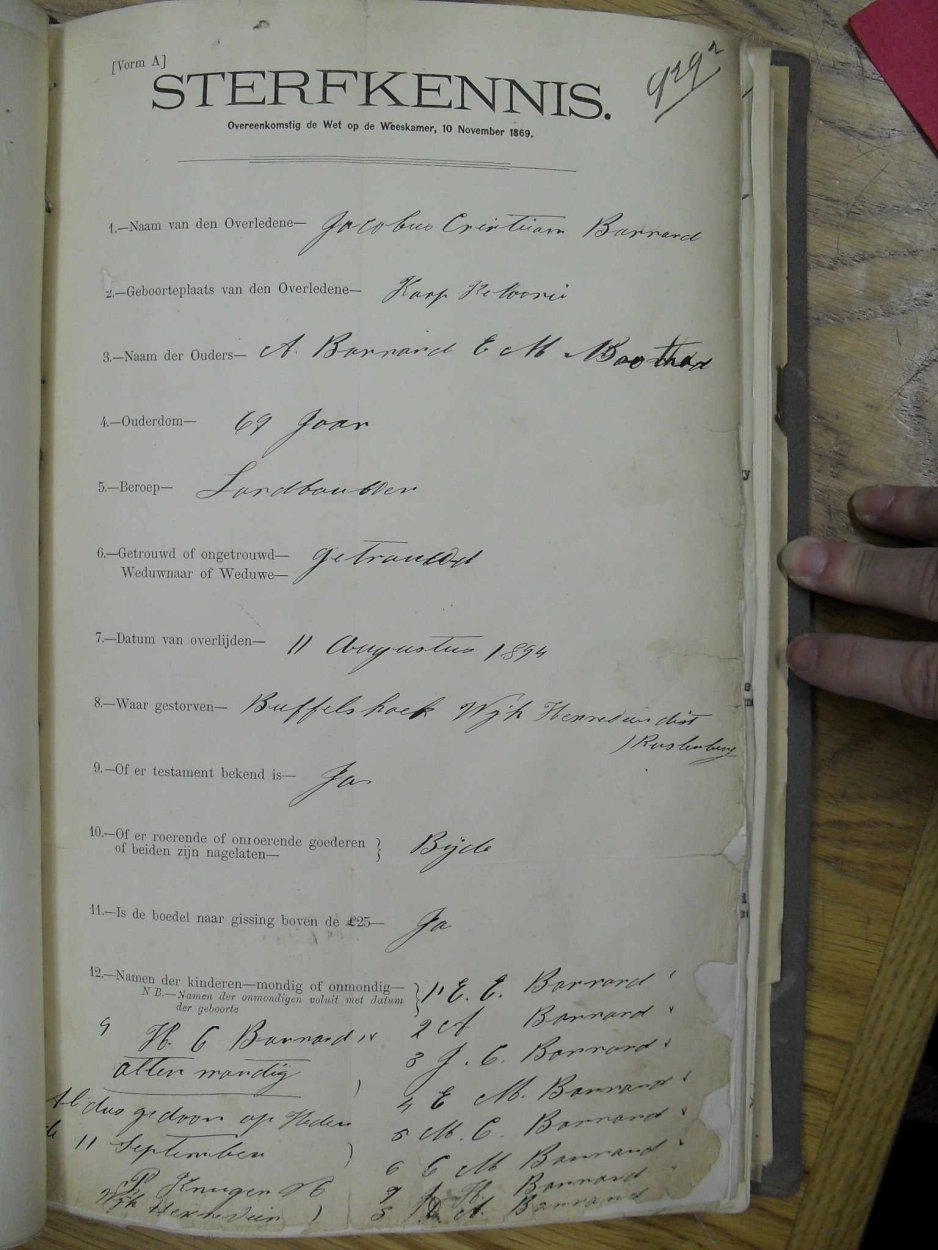 [Vorm A]
STERFKENNIS.
Overeenkomstig de Wet op de Weeskamer, 10 November 1869.
1.—Naam van den Overledene— Jacobus Cristiaan Barnard
2.—Geboorteplaats van den Overledene— Kaap
3.—Naam der Ouders— A. Barnard E M
4.—Ouderdom— 69 Jaar
5.—Beroep—
6.—Getrouwd of ongetrouwd—
Weduwnaar of Weduwe—
7.—Datum van overlijden— 11 Augustus 1894
8.—Waar gestorven— Buffelshoek Wyk Hexrevier dist
Rustenburg
9.—Of er testament bekend is— Ja
10.—Of er roerende of onroerende goederen
of beiden zijn nagelaten— Bijde
11.—Is de boedel naar gissing boven de £25— Ja
12.—Namen der kinderen—mondig of onmondig—
N B.—Namen der onmondigen voluit met datum
der geboorte
1 E. E. Barnard
2 A Barnard
3 J. C. Barnard
4 E M. Barnard
5 M. C. Barnard
6 C M Barnard
7 H. Barnard
8 A. Barnard
9 H. C Barnard
allen mondig
Aldus gedaan op Heden
de 11 September
P. Kruger
Wyk Hexrevier